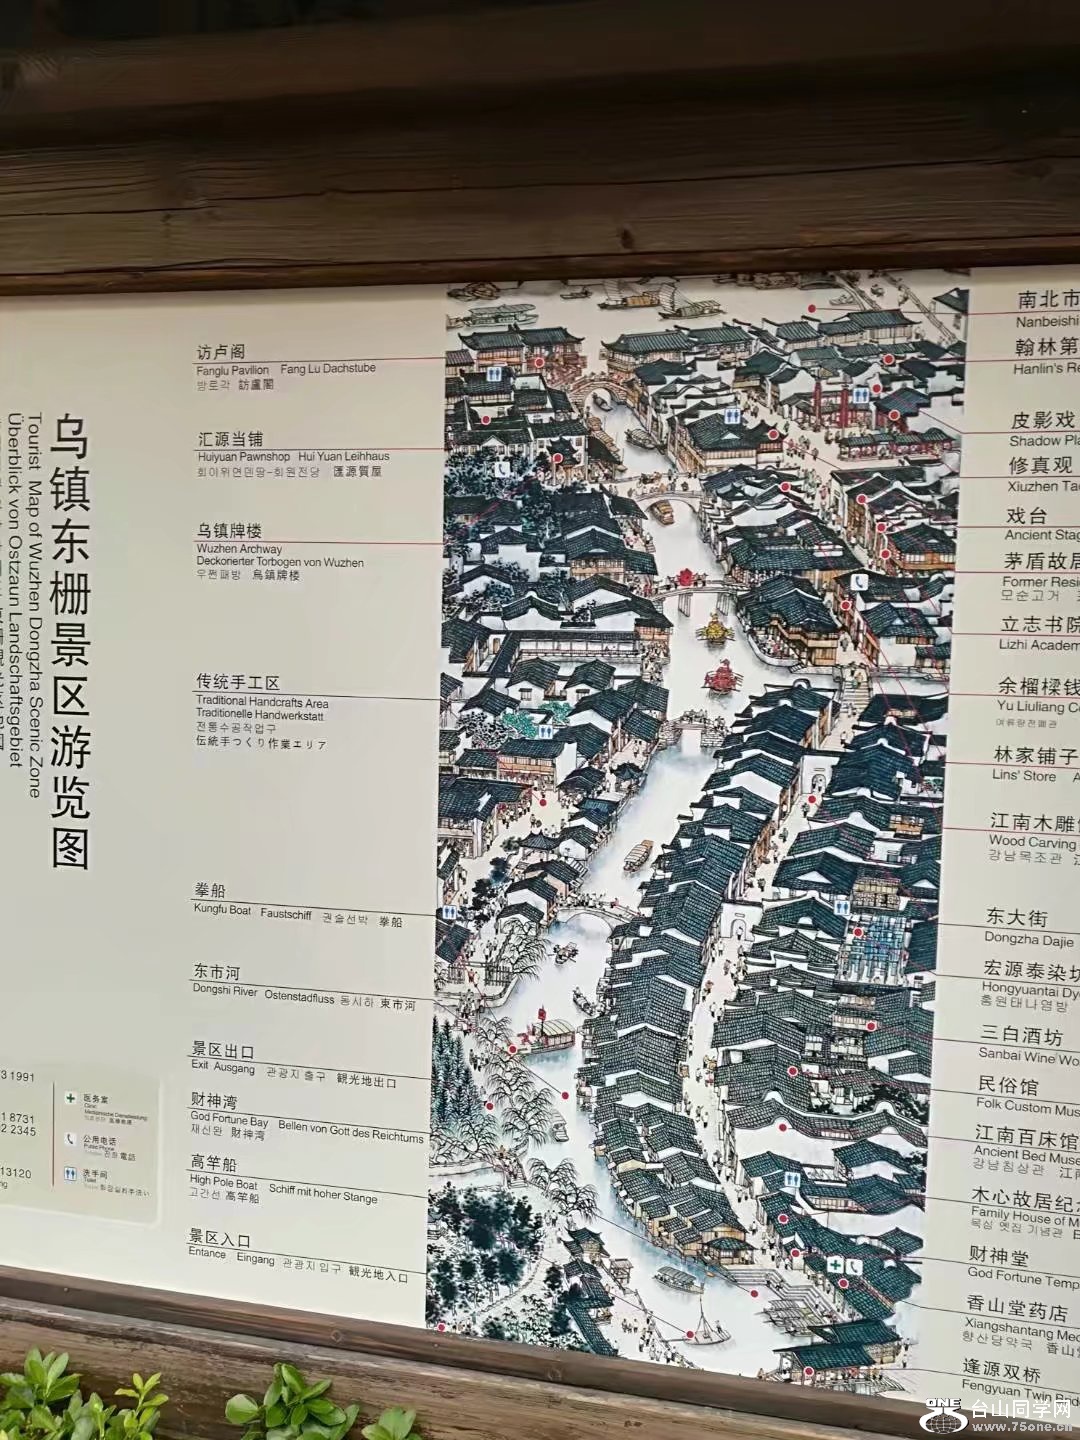 乌镇东栅景区游览图
Tourist Map of Wuzhen Dongzha Scenic Zone
Überblick von Ostzaun Landschaftsgebiet
访卢阁
Fanglu Pavilion Fang Lu Dachstube
방로각 訪盧閣
汇源当铺
Huiyuan Pawnshop Hui Yuan Leihhaus
회이위앤댄땅-회원전당 匯源質屋
乌镇牌楼
Wuzhen Archway
Deckorierter Torbogen von Wuzhen
우쩐패방 烏鎮牌楼
传统手工区
Traditional Handcrafts Area
Traditionelle Handwerkstatt
전통수공작업구
伝統手つくり作業エリア
拳船
Kungfu Boat Faustschiff 권술선박 拳船
东市河
Dongshi River Ostenstadfluss 동시하 東市河
景区出口
Exit Ausgang 관광지출구 観光地出口
财神湾
God Fortune Bay Bellen von Gott des Reichtums
재신완 財神湾
高竿船
High Pole Boat Schiff mit hoher Stange
고간선 高竿船
景区入口
Entance Eingang 관광지입구 観光地入口
3 1991
1 8731
2 2345
13120
ng
医务室
Clinic
公用电话
Public Phone
洗手间
Toilet
南北市
Nanbeishi
翰林第
Hanlin's Re
皮影戏
Shadow Pla
修真观
Xiuzhen Tao
戏台
Ancient Stag
茅盾故居
Former Resi
모순고거
立志书院
Lizhi Academ
余榴樑钱
Yu Liuliang Co
여류량전폐관
林家铺子
Lins' Store A
江南木雕
Wood Carving
강남목조관 江
东大街
Dongzha Dajie
宏源泰染坊
Hongyuantai Dy
홍원태나염방
三白酒坊
Sanbai Wine Wo
民俗馆
Folk Custom Mus
江南百床馆
Ancient Bed Muse
강남침상관 江南
木心故居纪念
Family House of M
목심 옛집 기념관
财神堂
God Fortune Temp
香山堂药店
Xiangshantang Med
향산당약국 香山堂
逢源双桥
Fengyuan Twin Bridg
ONE 台山同学网
www.75one.cn